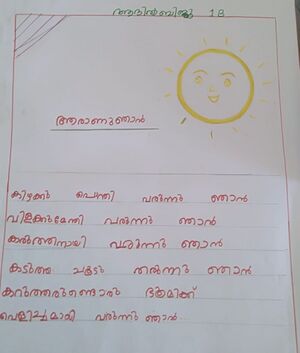 ആദിയബിജു 1 B
ആരാണുഞാൻ
കിഴക്കു പൊന്തി വരുന്നു ഞാൻ
വിളക്കുമേന്തി വരുന്നു ഞാൻ
വരുന്നു ഞാൻ
കടുത്ത ചൂടു തരുന്നു ഞാൻ
കറുത്തരുണ്ടൊരു ഭൂമിക്ക്
വെളിച്ചമായി വരുന്നു ഞാൻ